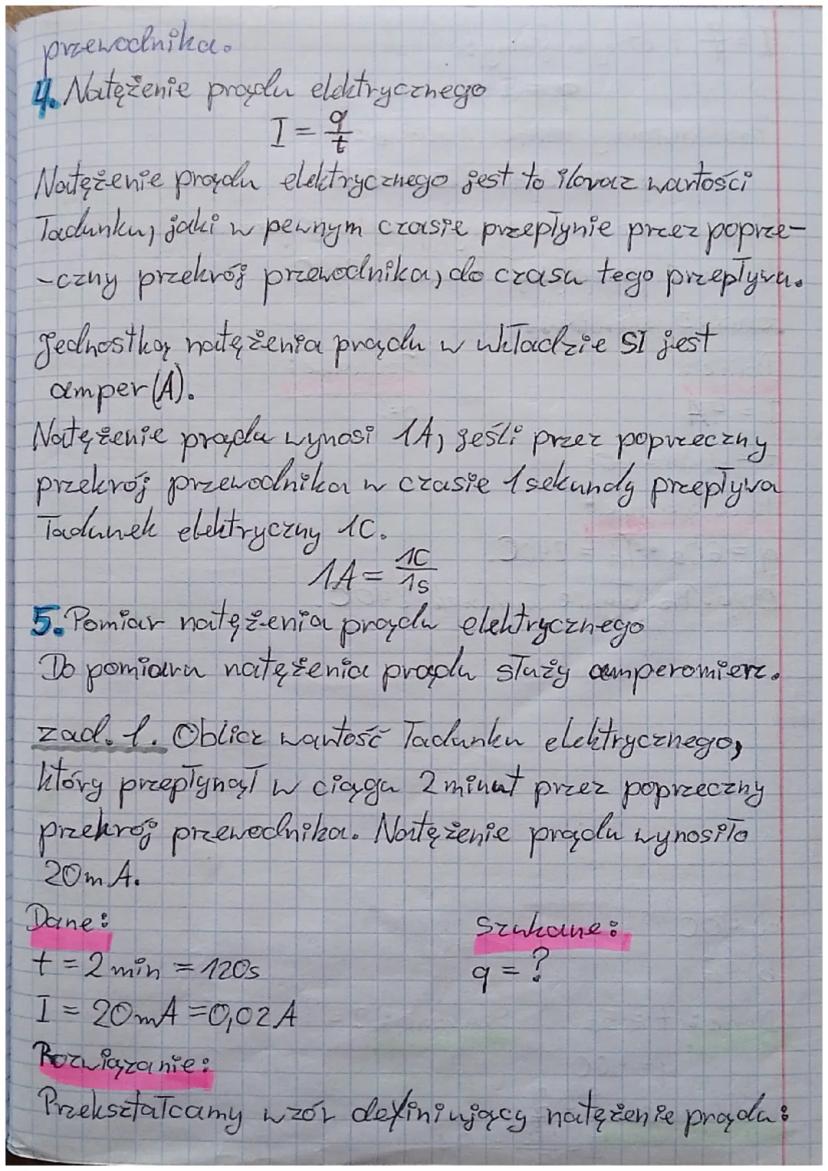 przewodnika.
4. Natężenie prądu elektrycznego
I = q/t
Natężenie prądu elektrycznego jest to iloraz wartości
ładunku, jaki w pewnym czasie przepłynie przez poprze-
-czny przekrój przewodnika, do czasu tego przepływu.
Jednostką natężenia prądu w układzie SI jest
amper (A).
Natężenie prądu wynosi 1A, jeśli przez poprzeczny
przekrój przewodnika w czasie 1 sekundy przepływa
ładunek elektryczny 1C.
1A = 1C/1s
5. Pomiar natężenia prądu elektrycznego
Do pomiaru natężenia prądu służy amperomierz.
zad. 1. Oblicz wartość ładunku elektrycznego,
który przepłynął w ciągu 2 minut przez poprzeczny
przekrój przewodnika. Natężenie prądu wynosiło
20mA.
Dane:
t = 2 min = 120s
I = 20mA = 0,02A
Szukane:
q = ?
Rozwiązanie:
Przekształcamy wzór definiujący natężenie prądu: